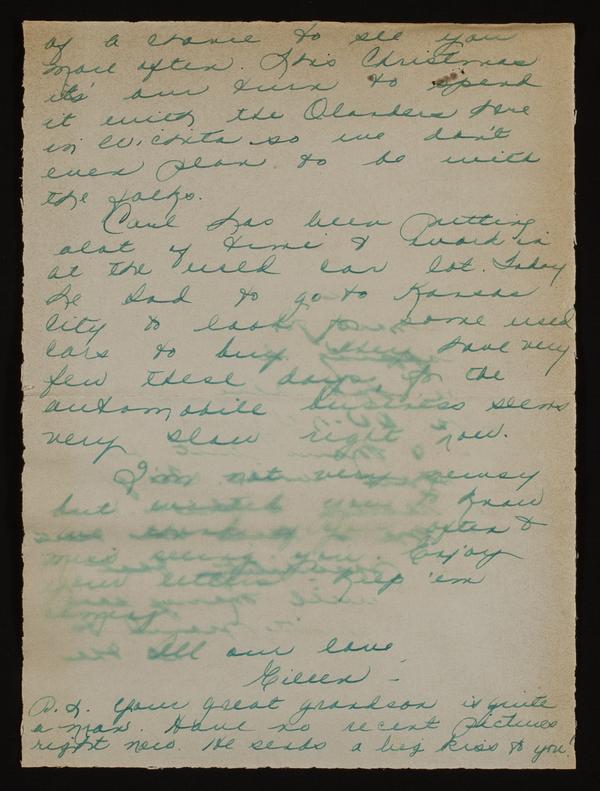 of a chance to see you
more often. This Christmas
its' our turn to spend
it with the Olanders here
in Wichita so we don't
even plan to be with
the folks.
Carl has been putting
alot of time & work in
at the used car lot. Today
he had to go to Kansas
City to look for some used
cars to buy. They have very
few these days, for the
automobile business seems
very slow right now.
I'm not very newsy
but wanted you to know
we often &
miss seeing you. Enjoy
your letters. Keep 'em
coming
All our love
Eileen -
P.S. Your great grandson is quite
a man. Have no recent pictures
right now. He sends a big kiss to you!